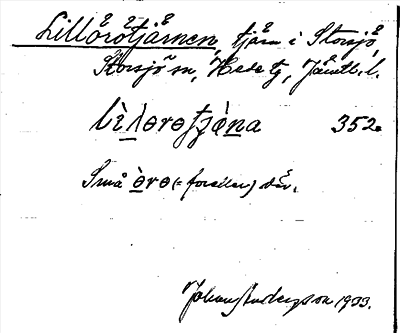 Lillörötjärnen, tjärn i Storsjö,
Storsjö sn, Hede tg, Jämtl. l.
lìlɵrɵtjɑ́na 352.
Små ɵ̀rɵ (= foreller) där.
Johan Anderson 1933.